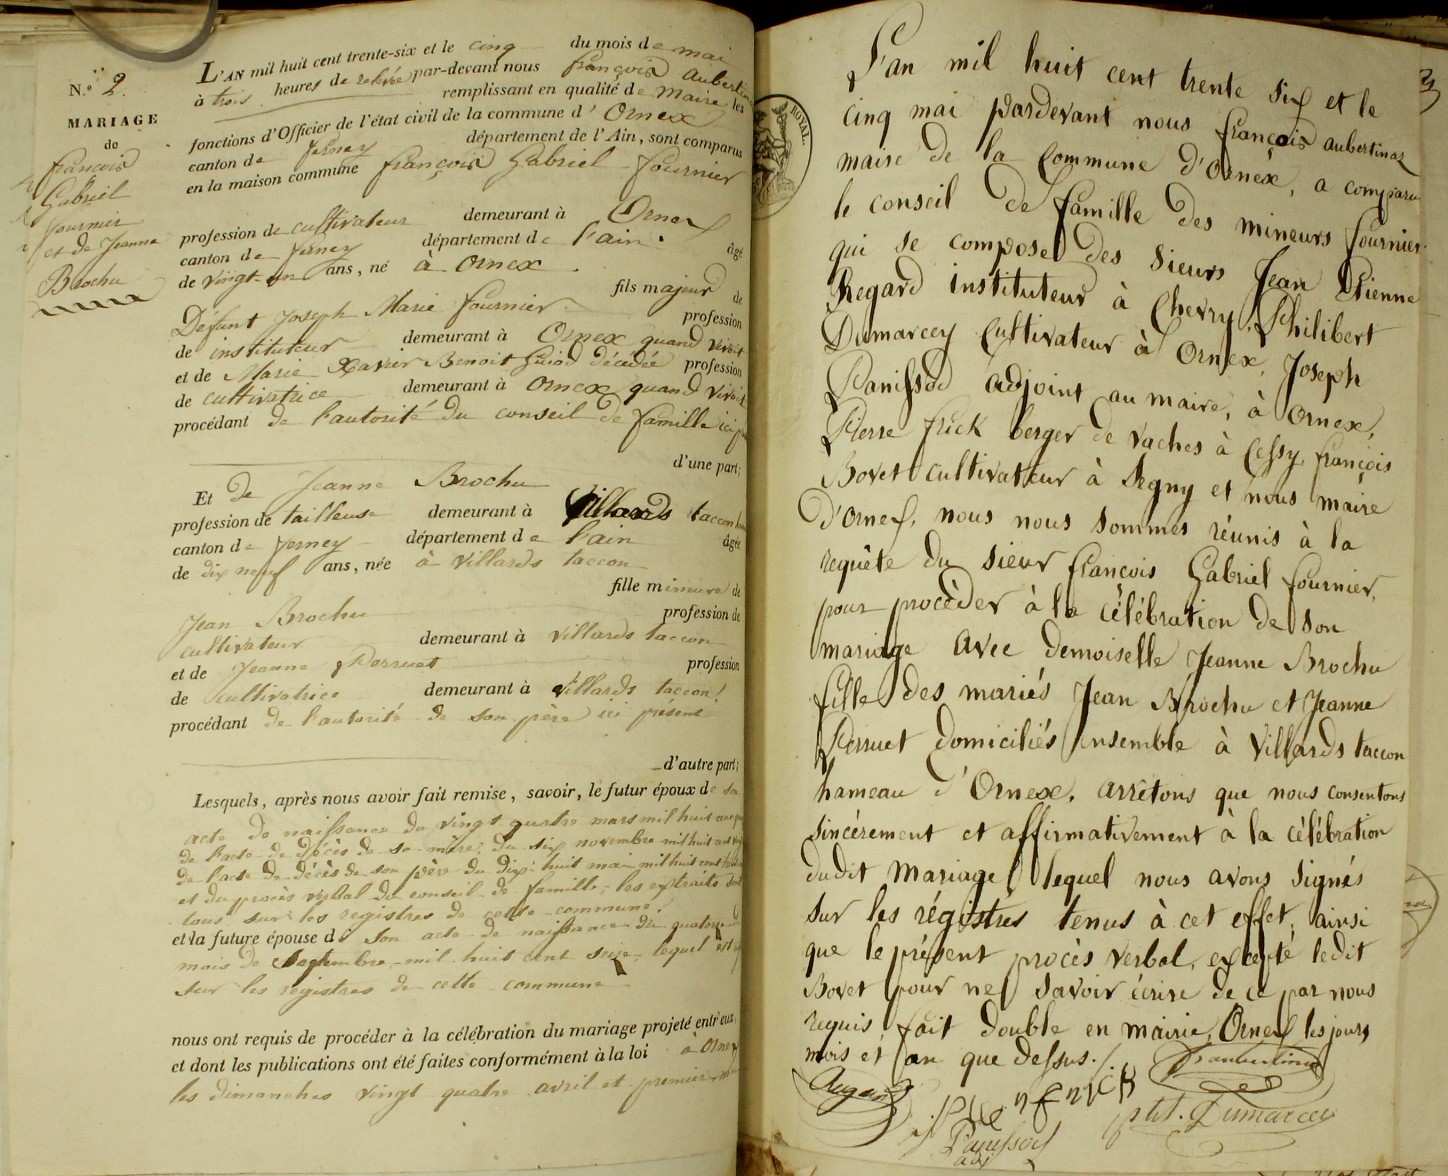 N.º 2
MARIAGE
de
françois
Gabriel
fournier
et de Jeanne
Brochu
L'AN mil huit cent trente-six et le cinq du mois de mai
à trois heures de relevée par-devant nous françois aubertin
remplissant en qualité de Maire les
fonctions d'Officier de l'état civil de la commune d' Ornex
canton de ferney département de l'Ain, sont comparus
en la maison commune françois Gabriel fournier
profession de cultivateur demeurant à Ornex
canton de ferney département de l'ain. âgé
de vingt-un ans, né à Ornex.
fils majeur de
Défunt Joseph Marie fournier profession
de instituteur demeurant à Ornex quand vivoit
et de Marie Xavier Benoit décédée profession
de cultivatrice demeurant à Ornex quand vivoit
procédant de l'autorité du conseil de famille ici
d'une part;
Et de Jeanne Brochu
profession de tailleuse demeurant à Villards taccon
canton de ferney département de l'ain âgée
de dix neuf ans, née à Villards taccon
fille mineure de
Jean Brochu profession de
cultivateur demeurant à Villards taccon
et de Jeanne Perruet profession
de cultivatrice demeurant à Villards taccon
procédant de l'autorité de son père ici présent
d'autre part;
Lesquels, après nous avoir fait remise, savoir, le futur époux de son
acte de naissance du vingt quatre mars mil huit cent
de l'acte de décès de sa mère, du six novembre mil huit cent
de l'acte de décès de son père du dix-huit mai mil huit cent
et du procès verbal du conseil de famille, les extraits sont
tous sur les registres de cette commune.
et la future épouse de son acte de naissance du quatorze
mois de septembre mil huit cent seize, lequel est
sur les registres de cette commune
nous ont requis de procéder à la célébration du mariage projeté entr'eux
et dont les publications ont été faites conformément à la loi à Ornex
les dimanches vingt quatre avril et premier mai
ROYAL.
3
L'an mil huit cent trente six et le
cinq mai pardevant nous françois aubertin
maire de la Commune d'Ornex, a comparu
le conseil de famille des mineurs fournier
qui se compose des sieurs Jean Etienne
Regard instituteur à Chevry, Philibert
Dumarcey Cultivateur à Ornex, Joseph
Panissod adjoint au maire, à Ornex,
Pierre frick berger de vaches à Cessy, françois
Bovet cultivateur à Segny et nous maire
d'Ornex, nous nous sommes réunis à la
requête du sieur françois Gabriel fournier,
pour procéder à la célébration de son
mariage avec demoiselle Jeanne Brochu
fille des mariés Jean Brochu et Jeanne
Perruet domiciliés ensemble à Villards taccon
hameau d'Ornex, arrêtons que nous consentons
sincèrement et affirmativement à la célébration
dudit mariage, lequel nous avons signés
sur les régistres tenus à cet effet, ainsi
que le présent procès verbal, excepté ledit
Bovet pour ne savoir écrire de ce par nous
requis. fait double en mairie, Ornex les jours
mois et an que dessus.
Panissod
adj
phil. Dumarcey